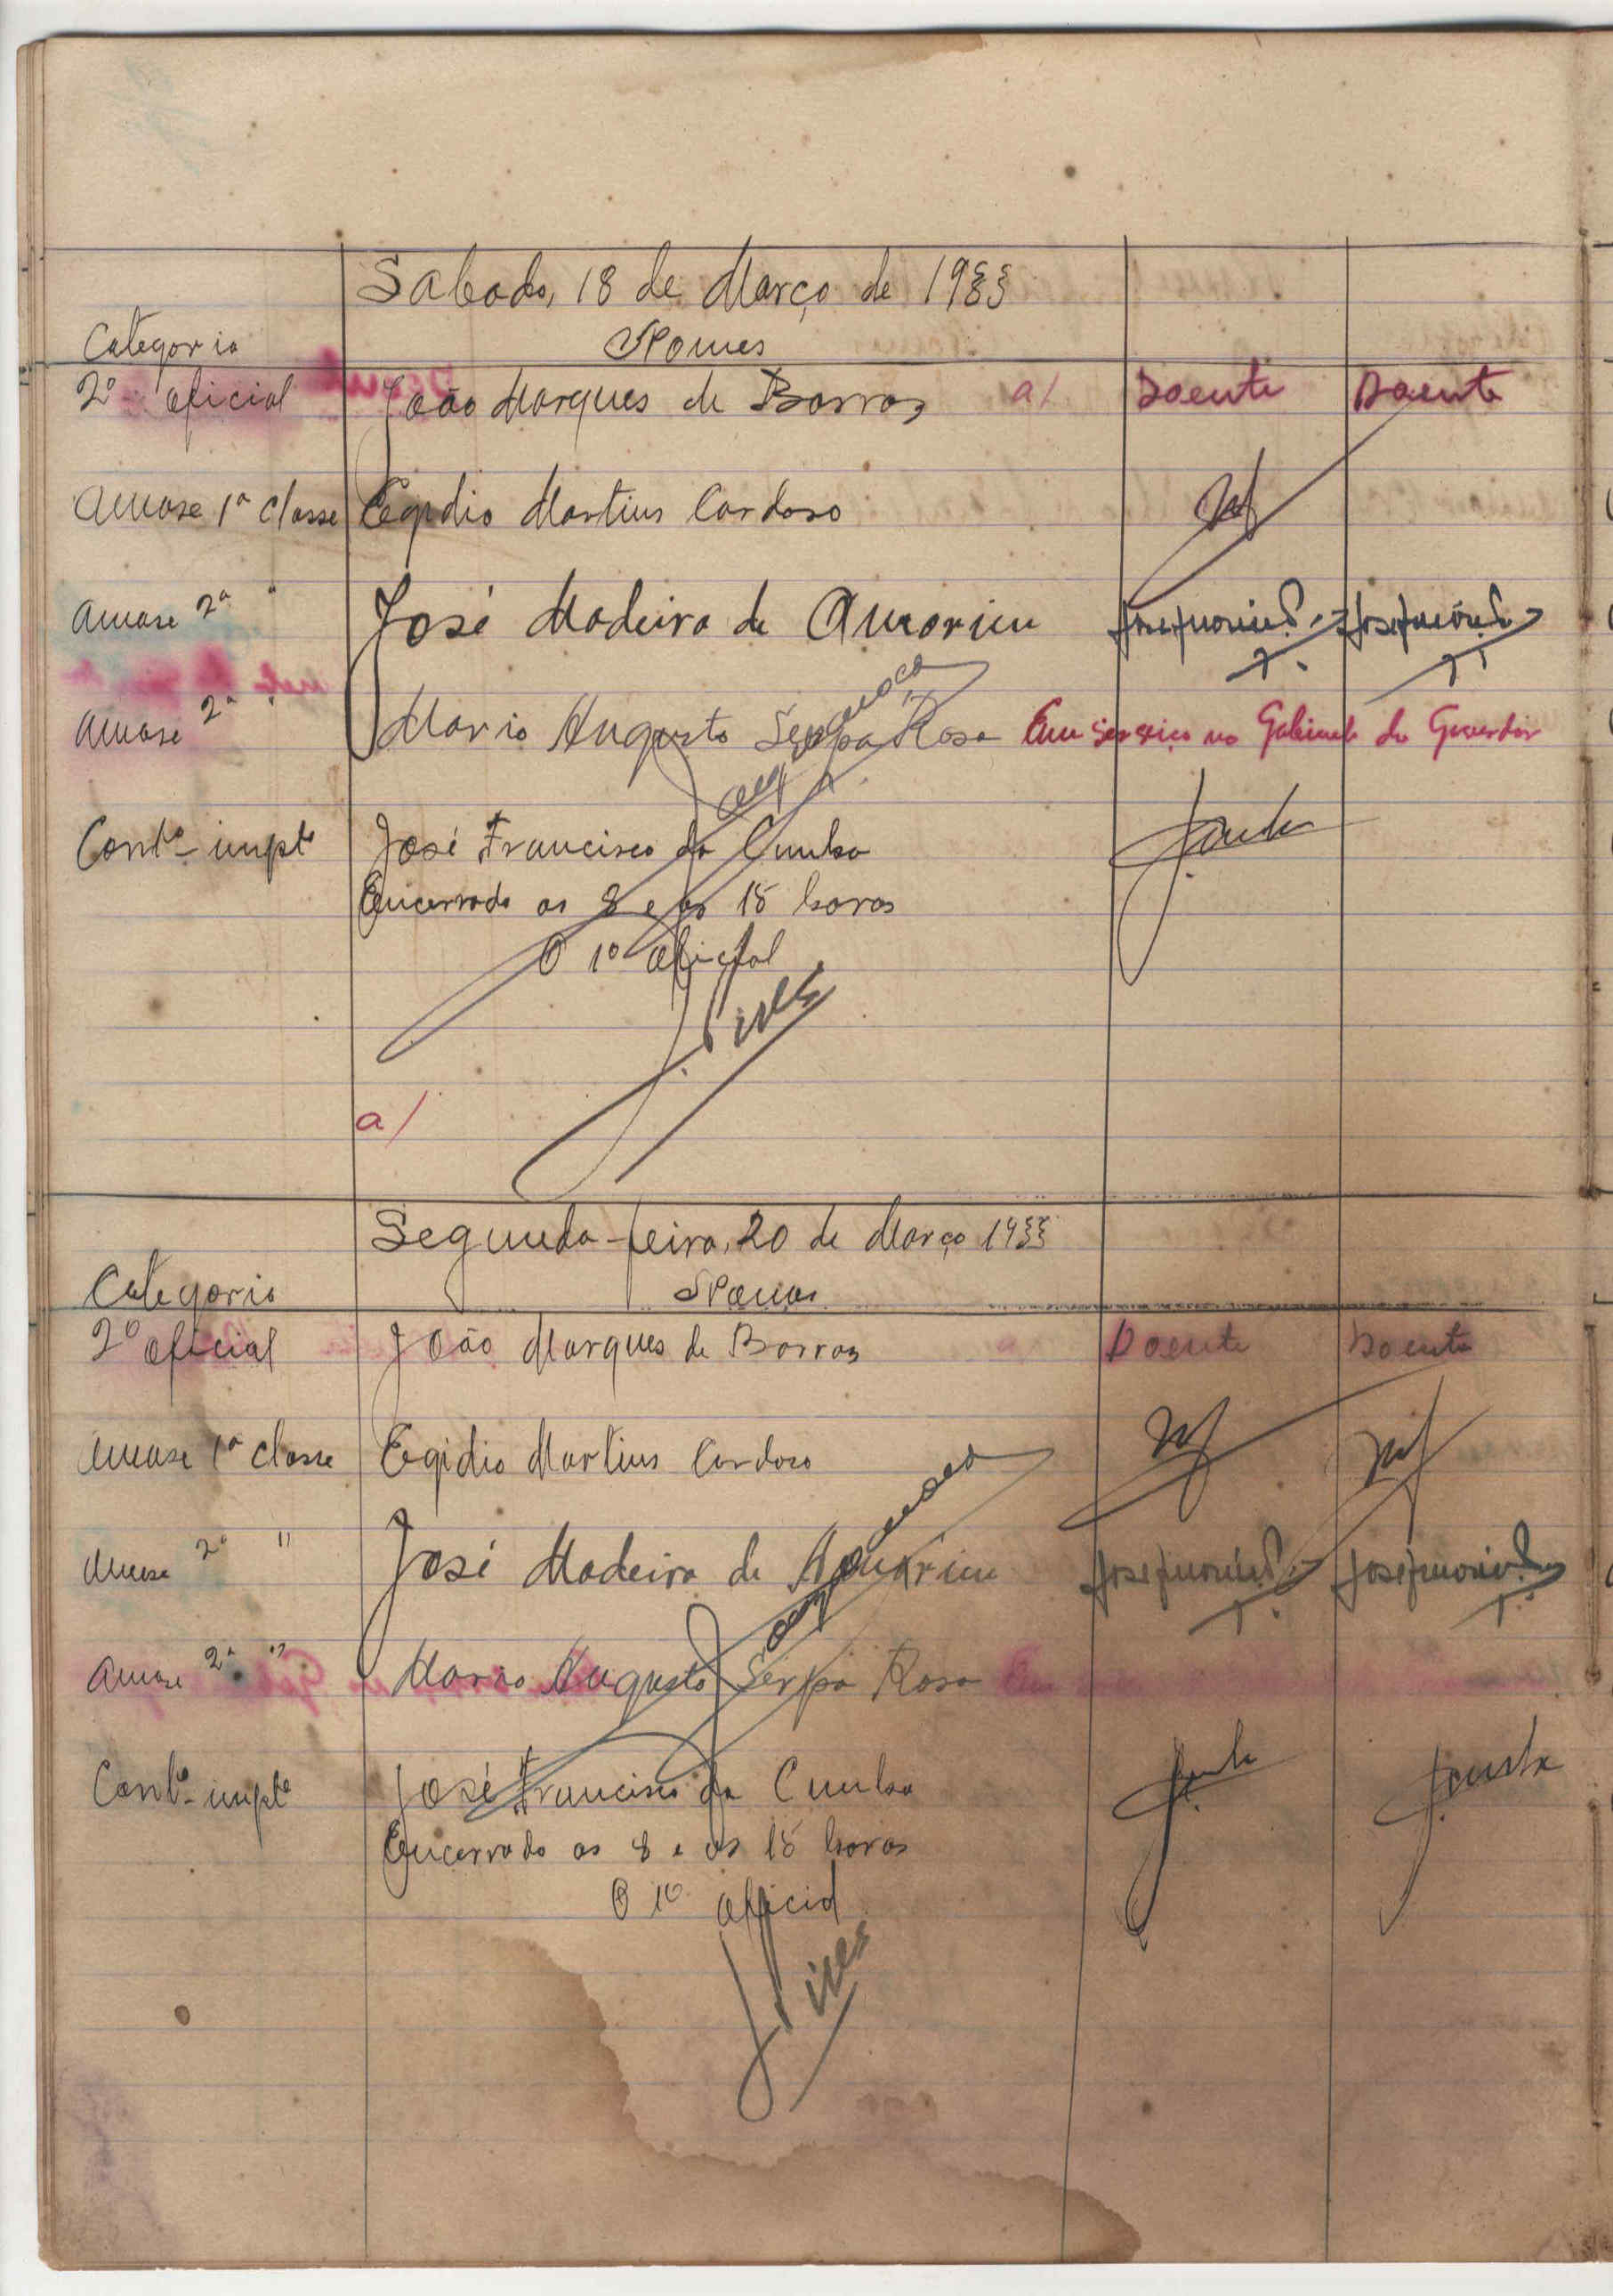 Sabado, 18 de Março de 1933
Categoria Nomes
2º oficial João Marques de Barros a/ Doente Doente
Amase 1ª classe Egidio Martins Cardoso
Amase 2ª " José Madeira de Amorim
Amase 2ª " Mario Augusto Serpa Rosa Em serviço no Gabinete do Governador
Contº impte José Francisco da Cunha
Encerrado as 8 e as 15 horas
O 1º oficial
Pires
a/
Segunda-feira, 20 de Março 1933
Categoria Nomes
2º oficial João Marques de Barros a Doente Doente
Amase 1ª classe Egidio Martins Cardoso
Amase 2ª " José Madeira de Amorim
Amase 2ª " Mario Augusto Serpa Rosa Em
Contº impte José Francisco da Cunha
Encerrado as 8 e as 15 horas
O 1º oficial
Pires